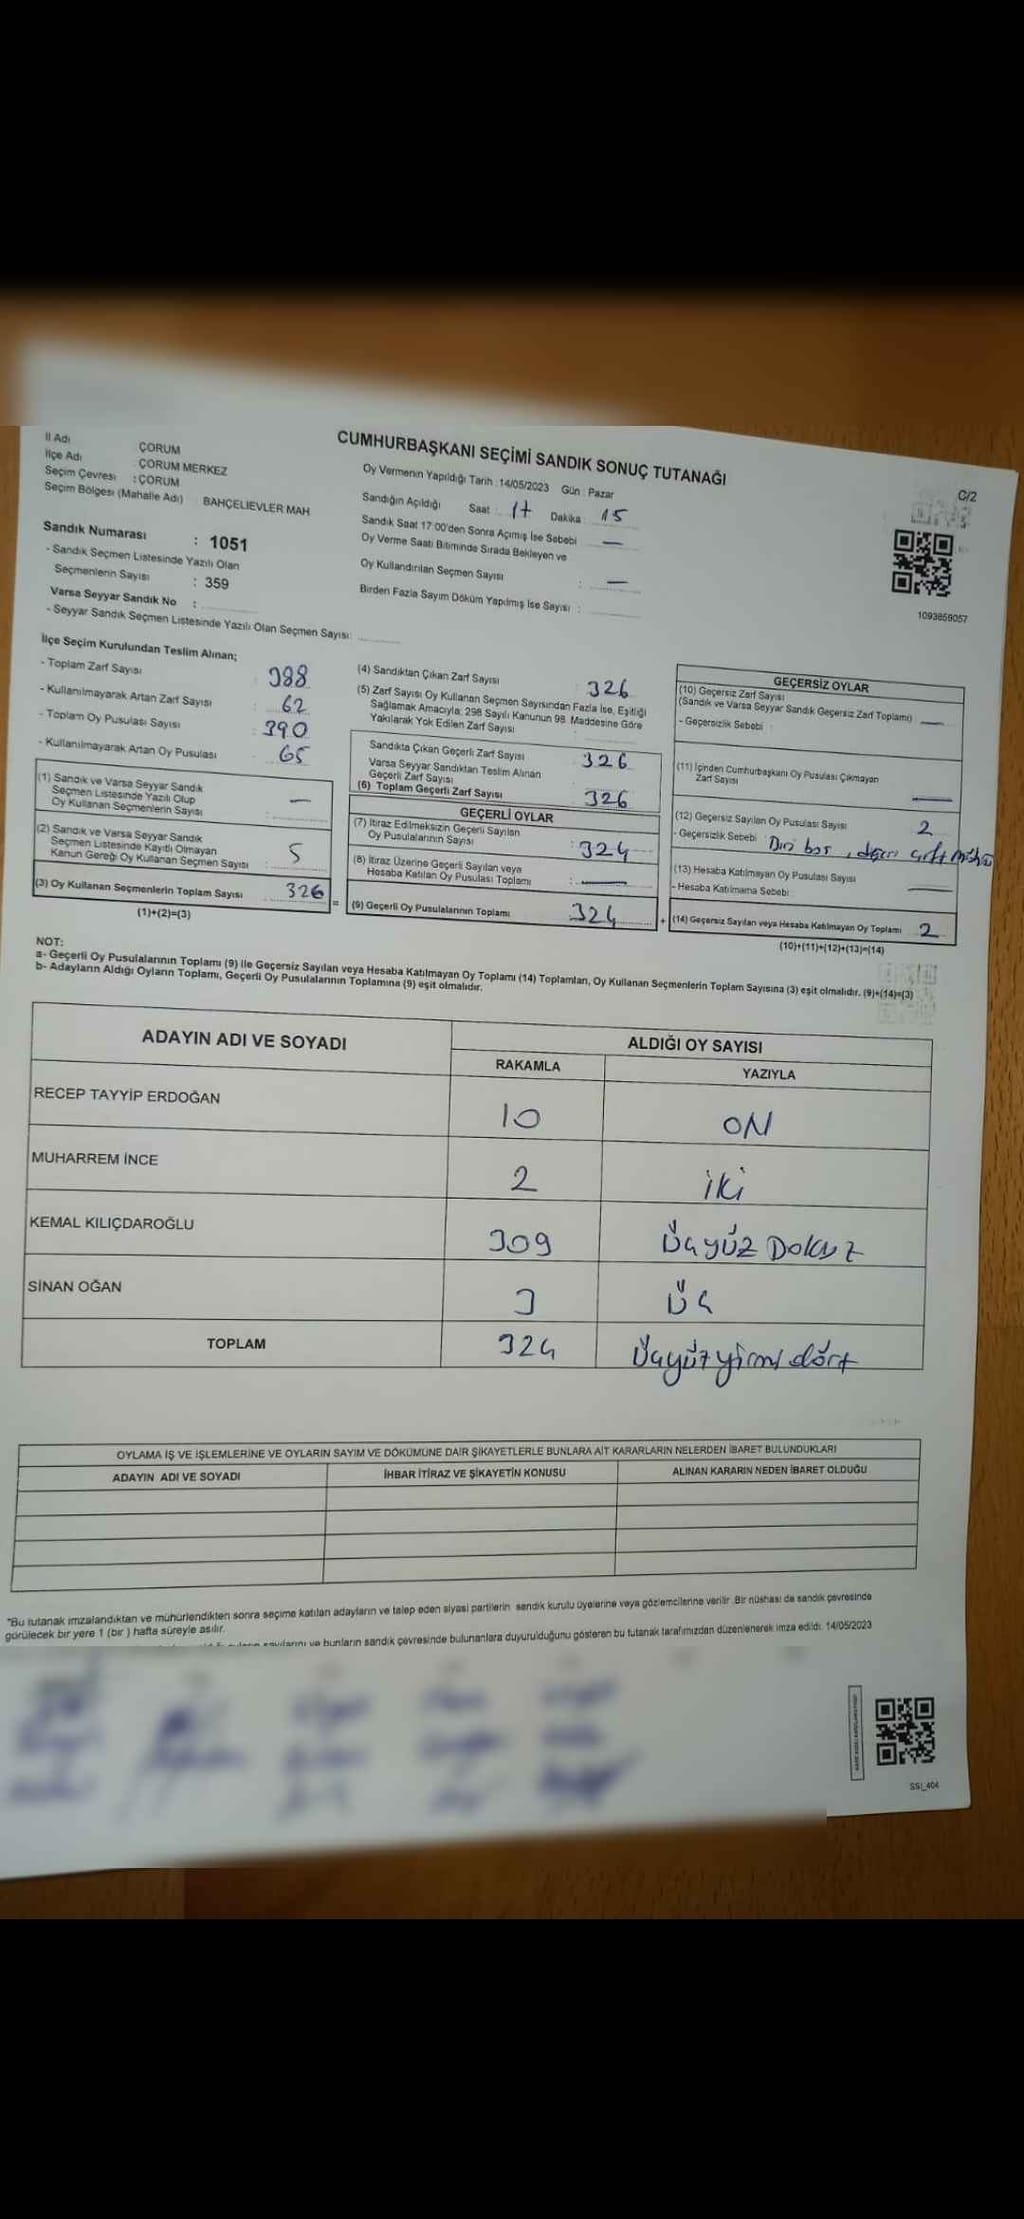 CUMHURBAŞKANI SEÇİMİ SANDIK SONUÇ TUTANAĞI
C/2
İl Adı ÇORUM
İlçe Adı ÇORUM MERKEZ
Seçim Çevresi : ÇORUM
Seçim Bölgesi (Mahalle Adı) BAHÇELİEVLER MAH
Sandık Numarası : 1051
- Sandık Seçmen Listesinde Yazılı Olan
Seçmenlerin Sayısı : 359
Varsa Seyyar Sandık No :
- Seyyar Sandık Seçmen Listesinde Yazılı Olan Seçmen Sayısı:
Oy Vermenin Yapıldığı Tarih : 14/05/2023 Gün : Pazar
Sandığın Açıldığı Saat : 17 Dakika : 15
Sandık Saat 17:00'den Sonra Açımış İse Sebebi : —
Oy Verme Saati Bitiminde Sırada Bekleyen ve
Oy Kullandırılan Seçmen Sayısı : —
Birden Fazla Sayım Döküm Yapılmış İse Sayısı :
1093859057
İlçe Seçim Kurulundan Teslim Alınan;
- Toplam Zarf Sayısı : 388
- Kullanılmayarak Artan Zarf Sayısı : 62
- Toplam Oy Pusulası Sayısı : 390
- Kullanılmayarak Artan Oy Pusulası : 65
(1) Sandık ve Varsa Seyyar Sandık
Seçmen Listesinde Yazılı Olup
Oy Kullanan Seçmenlerin Sayısı : —
(2) Sandık ve Varsa Seyyar Sandık
Seçmen Listesinde Kayıtlı Olmayan
Kanun Gereği Oy Kullanan Seçmen Sayısı : 5
(3) Oy Kullanan Seçmenlerin Toplam Sayısı : 326 =
(1)+(2)=(3)
(4) Sandıktan Çıkan Zarf Sayısı : 326
(5) Zarf Sayısı Oy Kullanan Seçmen Sayısından Fazla İse, Eşitliği
Sağlamak Amacıyla, 298 Sayılı Kanunun 98. Maddesine Göre
Yakılarak Yok Edilen Zarf Sayısı :
Sandıkta Çıkan Geçerli Zarf Sayısı : 326
Varsa Seyyar Sandıktan Teslim Alınan
Geçerli Zarf Sayısı
(6) Toplam Geçerli Zarf Sayısı : 326
GEÇERLİ OYLAR
(7) İtiraz Edilmeksizin Geçerli Sayılan
Oy Pusulalarının Sayısı : 324
(8) İtiraz Üzerine Geçerli Sayılan veya
Hesaba Katılan Oy Pusulası Toplamı : —
(9) Geçerli Oy Pusulalarının Toplamı : 324 +
GEÇERSİZ OYLAR
(10) Geçersiz Zarf Sayısı
(Sandık ve Varsa Seyyar Sandık Geçersiz Zarf Toplamı) : —
- Geçersizlik Sebebi :
(11) İçinden Cumhurbaşkanı Oy Pusulası Çıkmayan
Zarf Sayısı —
(12) Geçersiz Sayılan Oy Pusulası Sayısı 2
- Geçersizlik Sebebi : Biri boş, diğeri çift mühür
(13) Hesaba Katılmayan Oy Pusulası Sayısı —
- Hesaba Katılmama Sebebi :
(14) Geçersiz Sayılan veya Hesaba Katılmayan Oy Toplamı 2
(10)+(11)+(12)+(13)=(14)
NOT:
a- Geçerli Oy Pusulalarının Toplamı (9) ile Geçersiz Sayılan veya Hesaba Katılmayan Oy Toplamı (14) Toplamları, Oy Kullanan Seçmenlerin Toplam Sayısına (3) eşit olmalıdır. (9)+(14)=(3)
b- Adayların Aldığı Oyların Toplamı, Geçerli Oy Pusulalarının Toplamına (9) eşit olmalıdır.
ADAYIN ADI VE SOYADI ALDIĞI OY SAYISI
RAKAMLA YAZIYLA
RECEP TAYYİP ERDOĞAN 10 ON
MUHARREM İNCE 2 iki
KEMAL KILIÇDAROĞLU 309 Üçyüz Dokuz
SİNAN OĞAN 3 Üç
TOPLAM 324 Üçyüz yirmi dört
OYLAMA İŞ VE İŞLEMLERİNE VE OYLARIN SAYIM VE DÖKÜMÜNE DAİR ŞİKAYETLERLE BUNLARA AİT KARARLARIN NELERDEN İBARET BULUNDUKLARI
ADAYIN ADI VE SOYADI İHBAR İTİRAZ VE ŞİKAYETİN KONUSU ALINAN KARARIN NEDEN İBARET OLDUĞU
"Bu tutanak imzalandıktan ve mühürlendikten sonra seçime katılan adayların ve talep eden siyasi partilerin sandık kurulu üyelerine veya gözlemcilerine verilir. Bir nüshası da sandık çevresinde
görülecek bir yere 1 (bir ) hafta süreyle asılır.
sayılarını ve bunların sandık çevresinde bulunanlara duyurulduğunu gösteren bu tutanak tarafımızdan düzenlenerek imza edildi. 14/05/2023
SSI_404